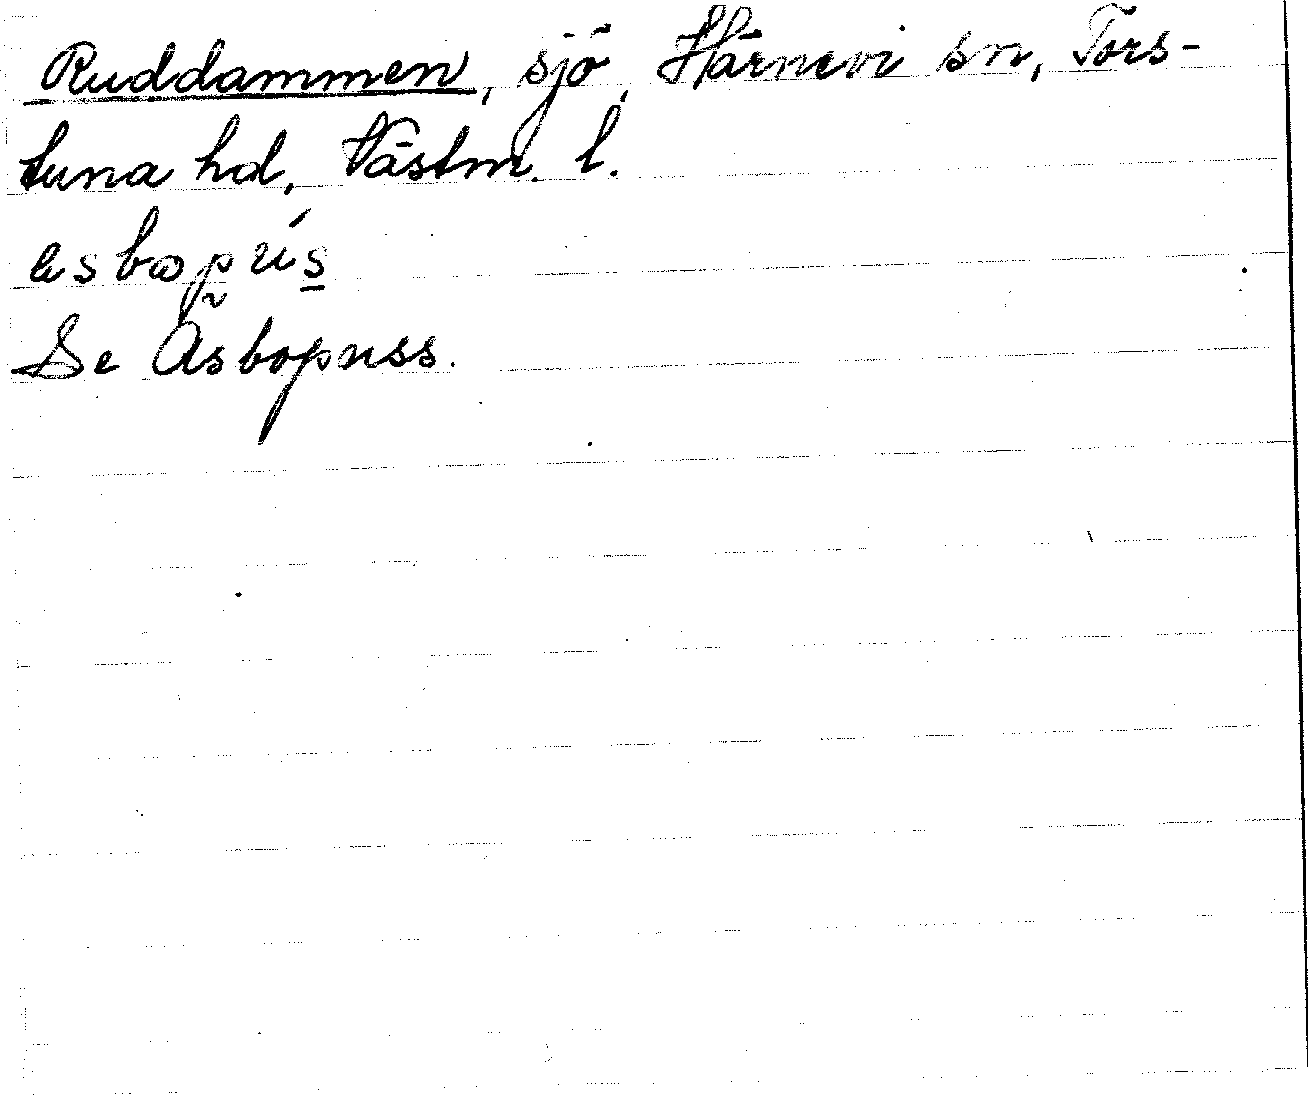 Ruddammen, sjö, Härnevi sn, Tors-
tuna hd, Västm. l.
Se Åsbopuss.